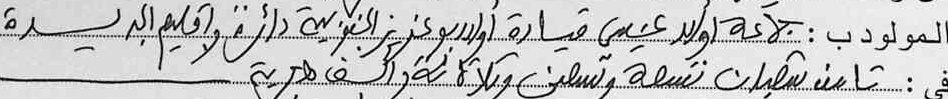 المولود ب: جماعة أولاد عيسى قيادة أولاد بوعزيز الجنوبية دائرة وإقليم الجديدة
في: ثامن شعبان تسعة وتسعين وثلاثمائة وألف هجرية